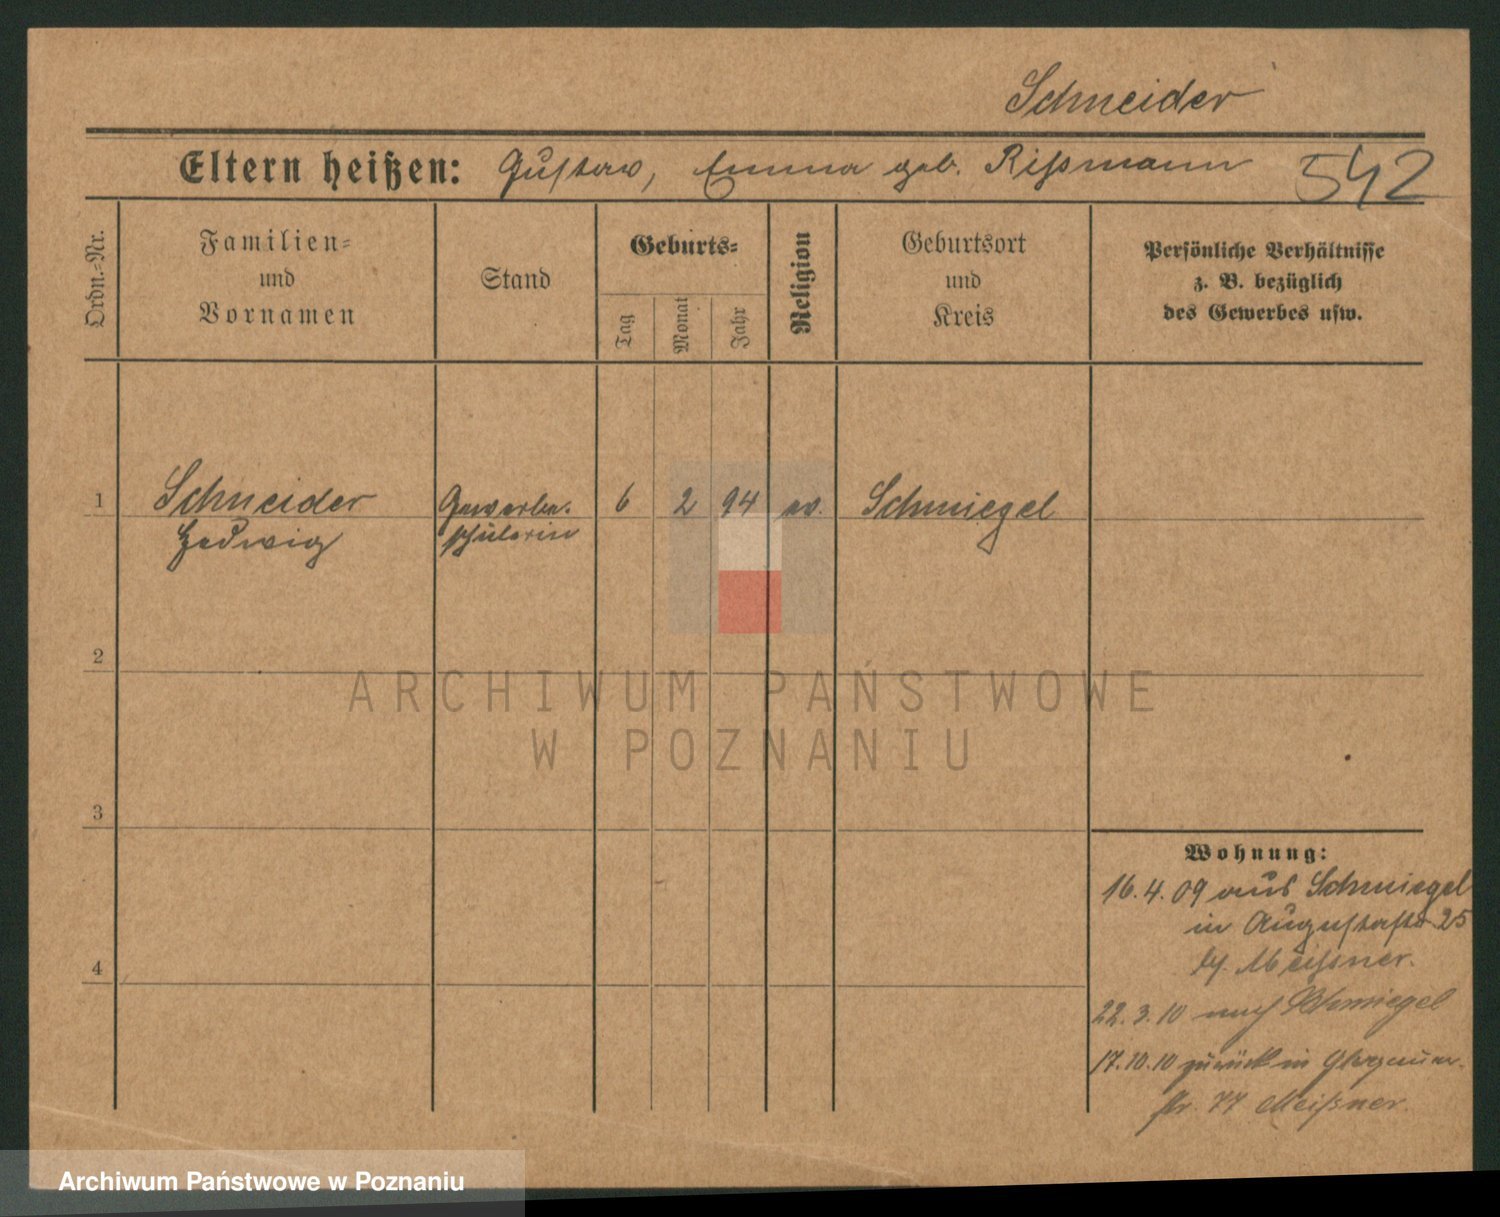 Schneider
Eltern heißen: Gustav, Emma geb. Rißmann 542
Ordn.-Nr.
Familien-
und
Vornamen
Stand
Geburts-
Tag
Monat
Jahr
Religion
Geburtsort
und
Kreis
Persönliche Verhältnisse
z. B. bezüglich
des Gewerbes usw.
1 Schneider Gewerbe- 6 2 94 ev. Schmiegel
Hedwig schülerin
2
ARCHIWUM PAŃSTWOWE
W POZNANIU
3
Wohnung:
16.4.09 aus Schmiegel
in Augustastr 25
4
Meißner.
22.3.10 nach Schmiegel
17.10.10 zurück in Glogauer-
str. 77 Meißner.
Archiwum Państwowe w Poznaniu